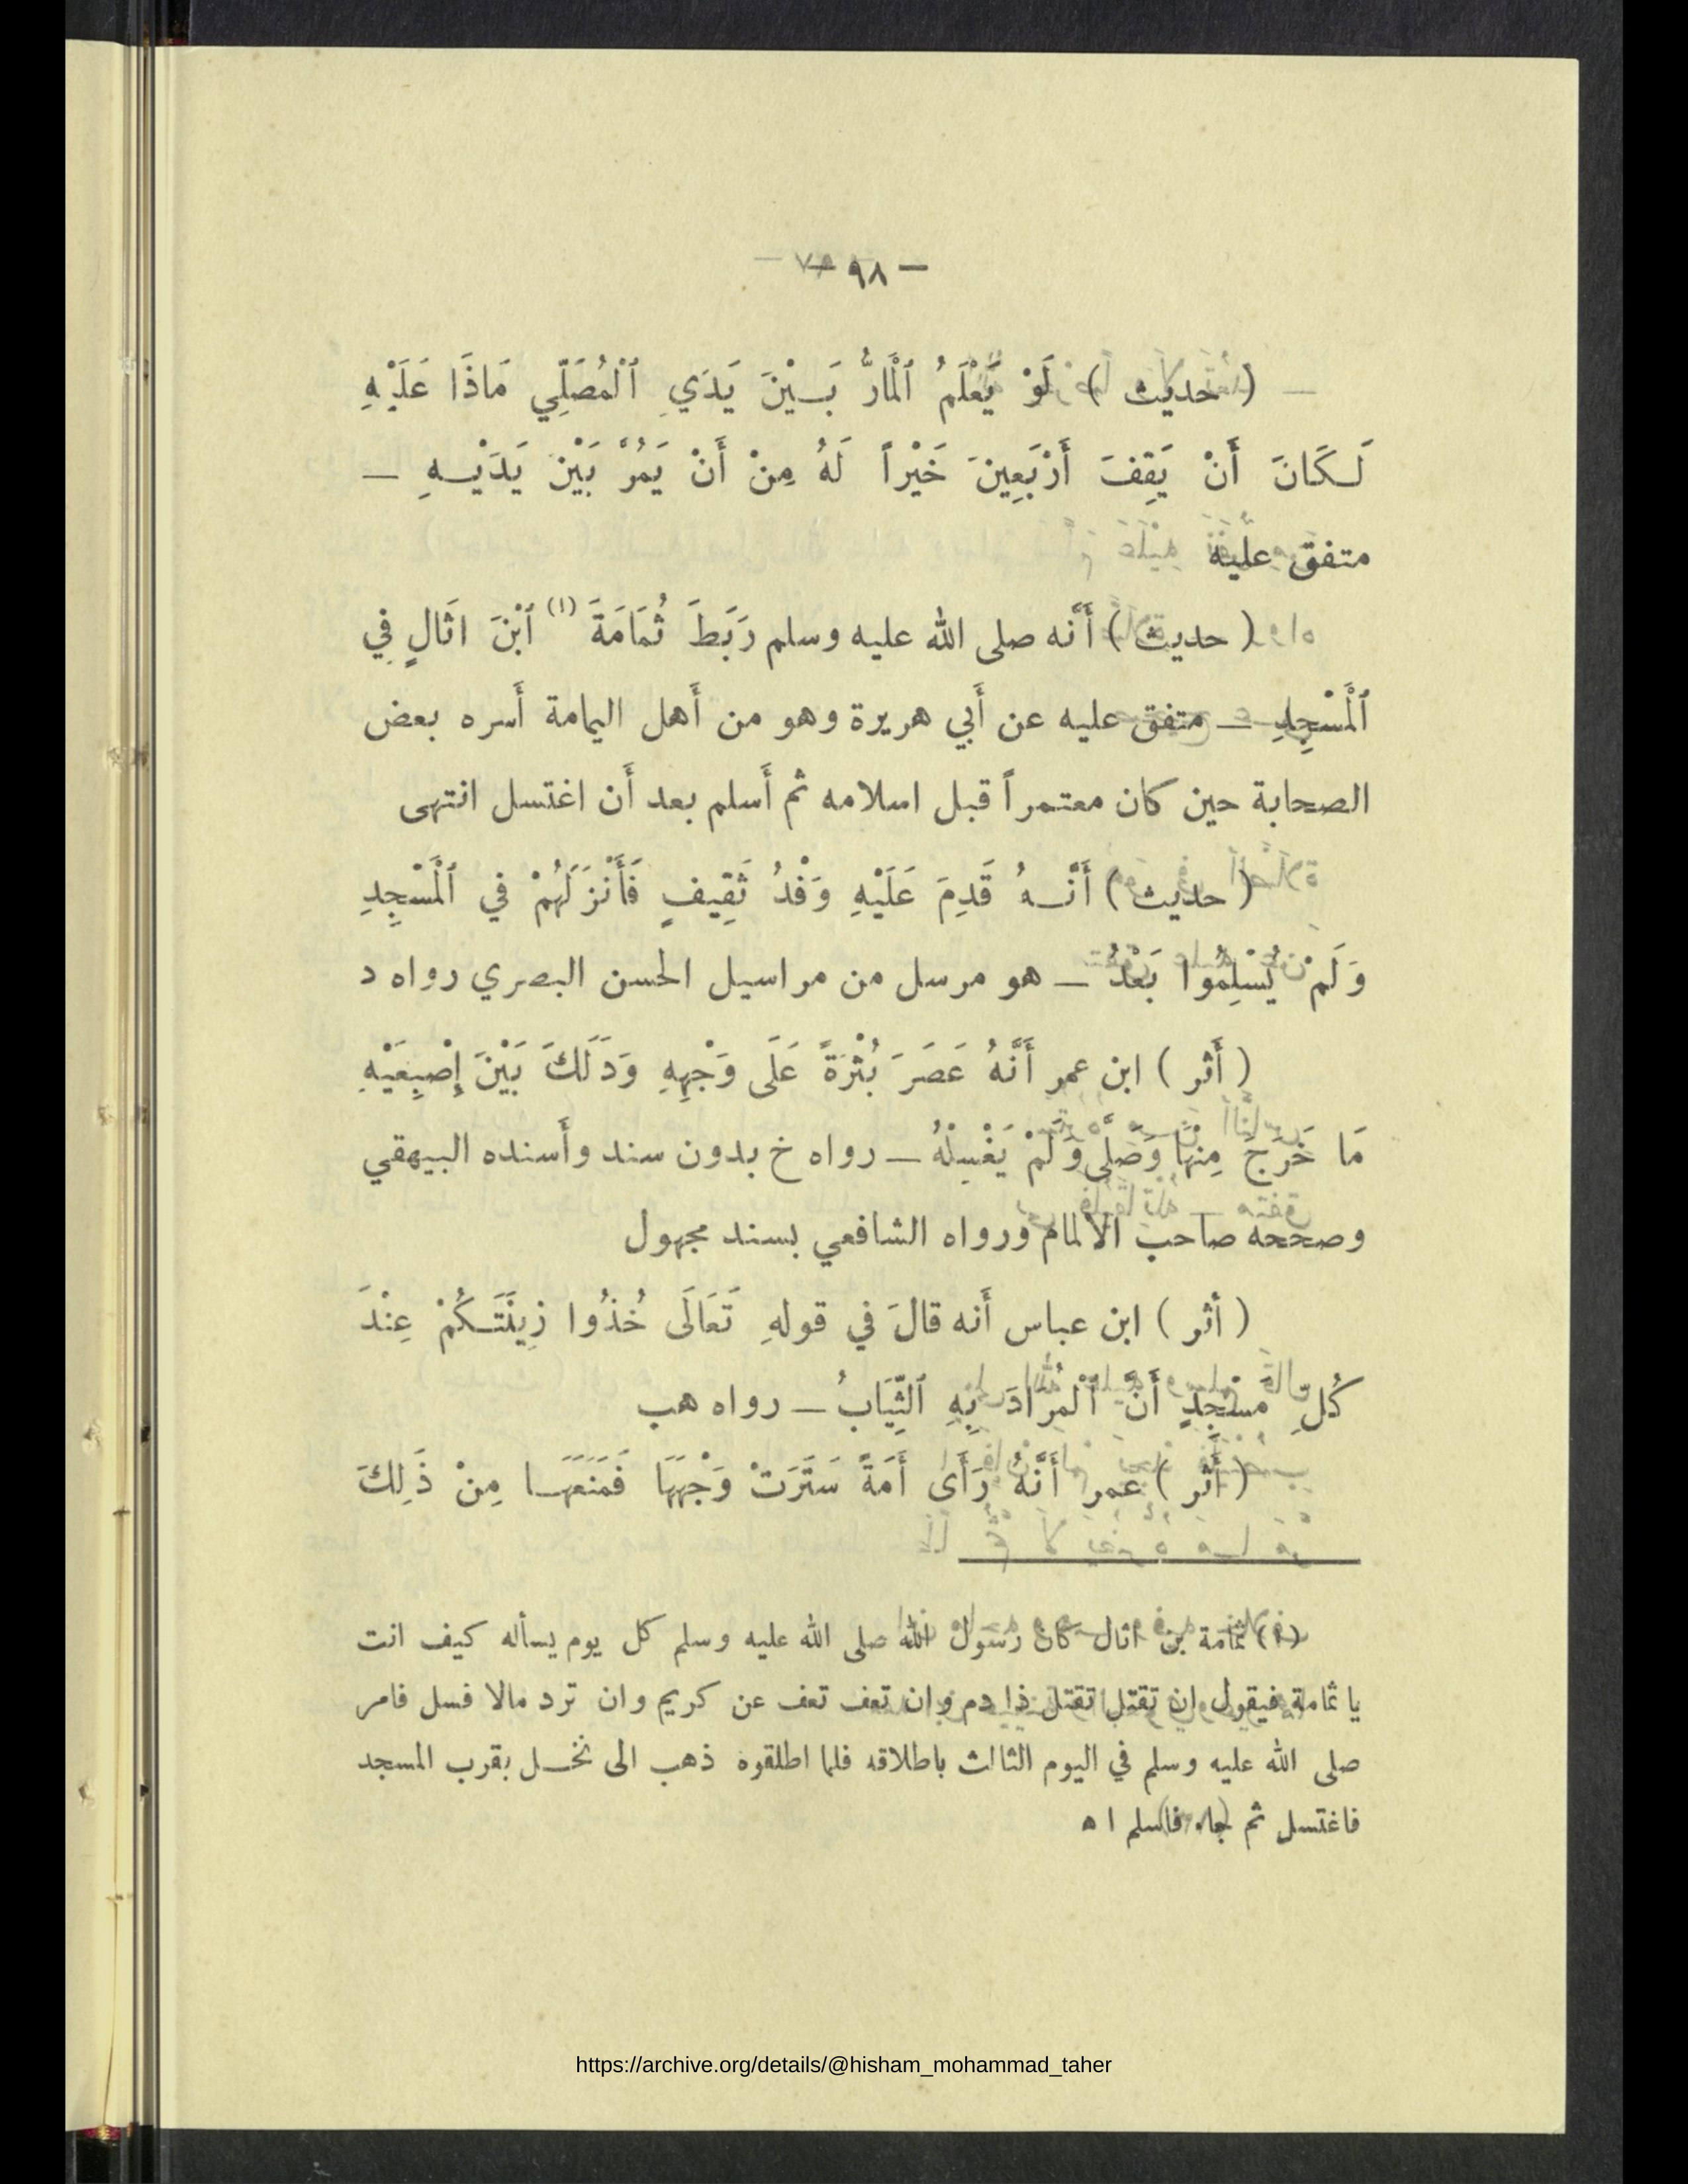 — ٩٨ —
( حديث ) لَوْ يَعْلَمُ ٱلْمَارُّ بَيْنَ يَدَيِ ٱلْمُصَلِّي مَاذَا عَلَيْهِ
لَكَانَ أَنْ يَقِفَ أَرْبَعِينَ خَيْراً لَهُ مِنْ أَنْ يَمُرَّ بَيْن يَدَيْهِ —
متفق عليه
( حديث ) أَنَّه صلى الله عليه وسلم رَبَطَ ثُمَامَةَ (١) ٱبْنَ اثَالٍ فِي
ٱلْمَسْجِدِ — متفق عليه عن أَبي هريرة وهو من أَهل اليمامة أَسره بعض
الصحابة حين كان معتمراً قبل اسلامه ثم أَسلم بعد أَن اغتسل انتهى
( حديث ) أَنَّهُ قَدِمَ عَلَيْهِ وَفْدُ ثَقِيفٍ فَأَنْزَلَهُمْ في ٱلْمَسْجِدِ
وَلَمْ يُسْلِمُوا بَعْدُ — هو مرسل من مراسيل الحسن البصري رواه د
( أَثر ) ابن عمر أَنَّهُ عَصَرَ بُثْرَةً عَلَى وَجْهِهِ وَدَلَكَ بَيْنَ إِصْبِعَيْهِ
مَا خَرَجَ مِنْهَا وَصَلَّى وَلَمْ يَغْسِلْهُ — رواه خ بدون سند وأَسنده البيهقي
وصححه صاحب الالمام ورواه الشافعي بسند مجهول
( أثر ) ابن عباس أَنه قالَ في قولهِ تَعَالَى خُذُوا زِينَتَكُمْ عِنْدَ
كُلِّ مَسْجِدٍ أَنَّ ٱلْمُرَادَ بِهِ ٱلثِّيَابُ — رواه هب
( أَثر ) عمر أَنَّهُ رَأَى أَمَةً سَتَرَتْ وَجْهَهَا فَمَنَعَهَا مِنْ ذَلِكَ
(١) ثمامة بن اثال كان رسول الله صلى الله عليه وسلم كل يوم يسأله كيف انت
يا ثمامة فيقول ان تقتل تقتل ذا دم وان تعف تعف عن كريم وان ترد مالا فسل فامر
صلى الله عليه وسلم في اليوم الثالث باطلاقه فلما اطلقوه ذهب الى نخل بقرب المسجد
فاغتسل ثم جاء فاسلم ا ه
https://archive.org/details/@hisham_mohammad_taher